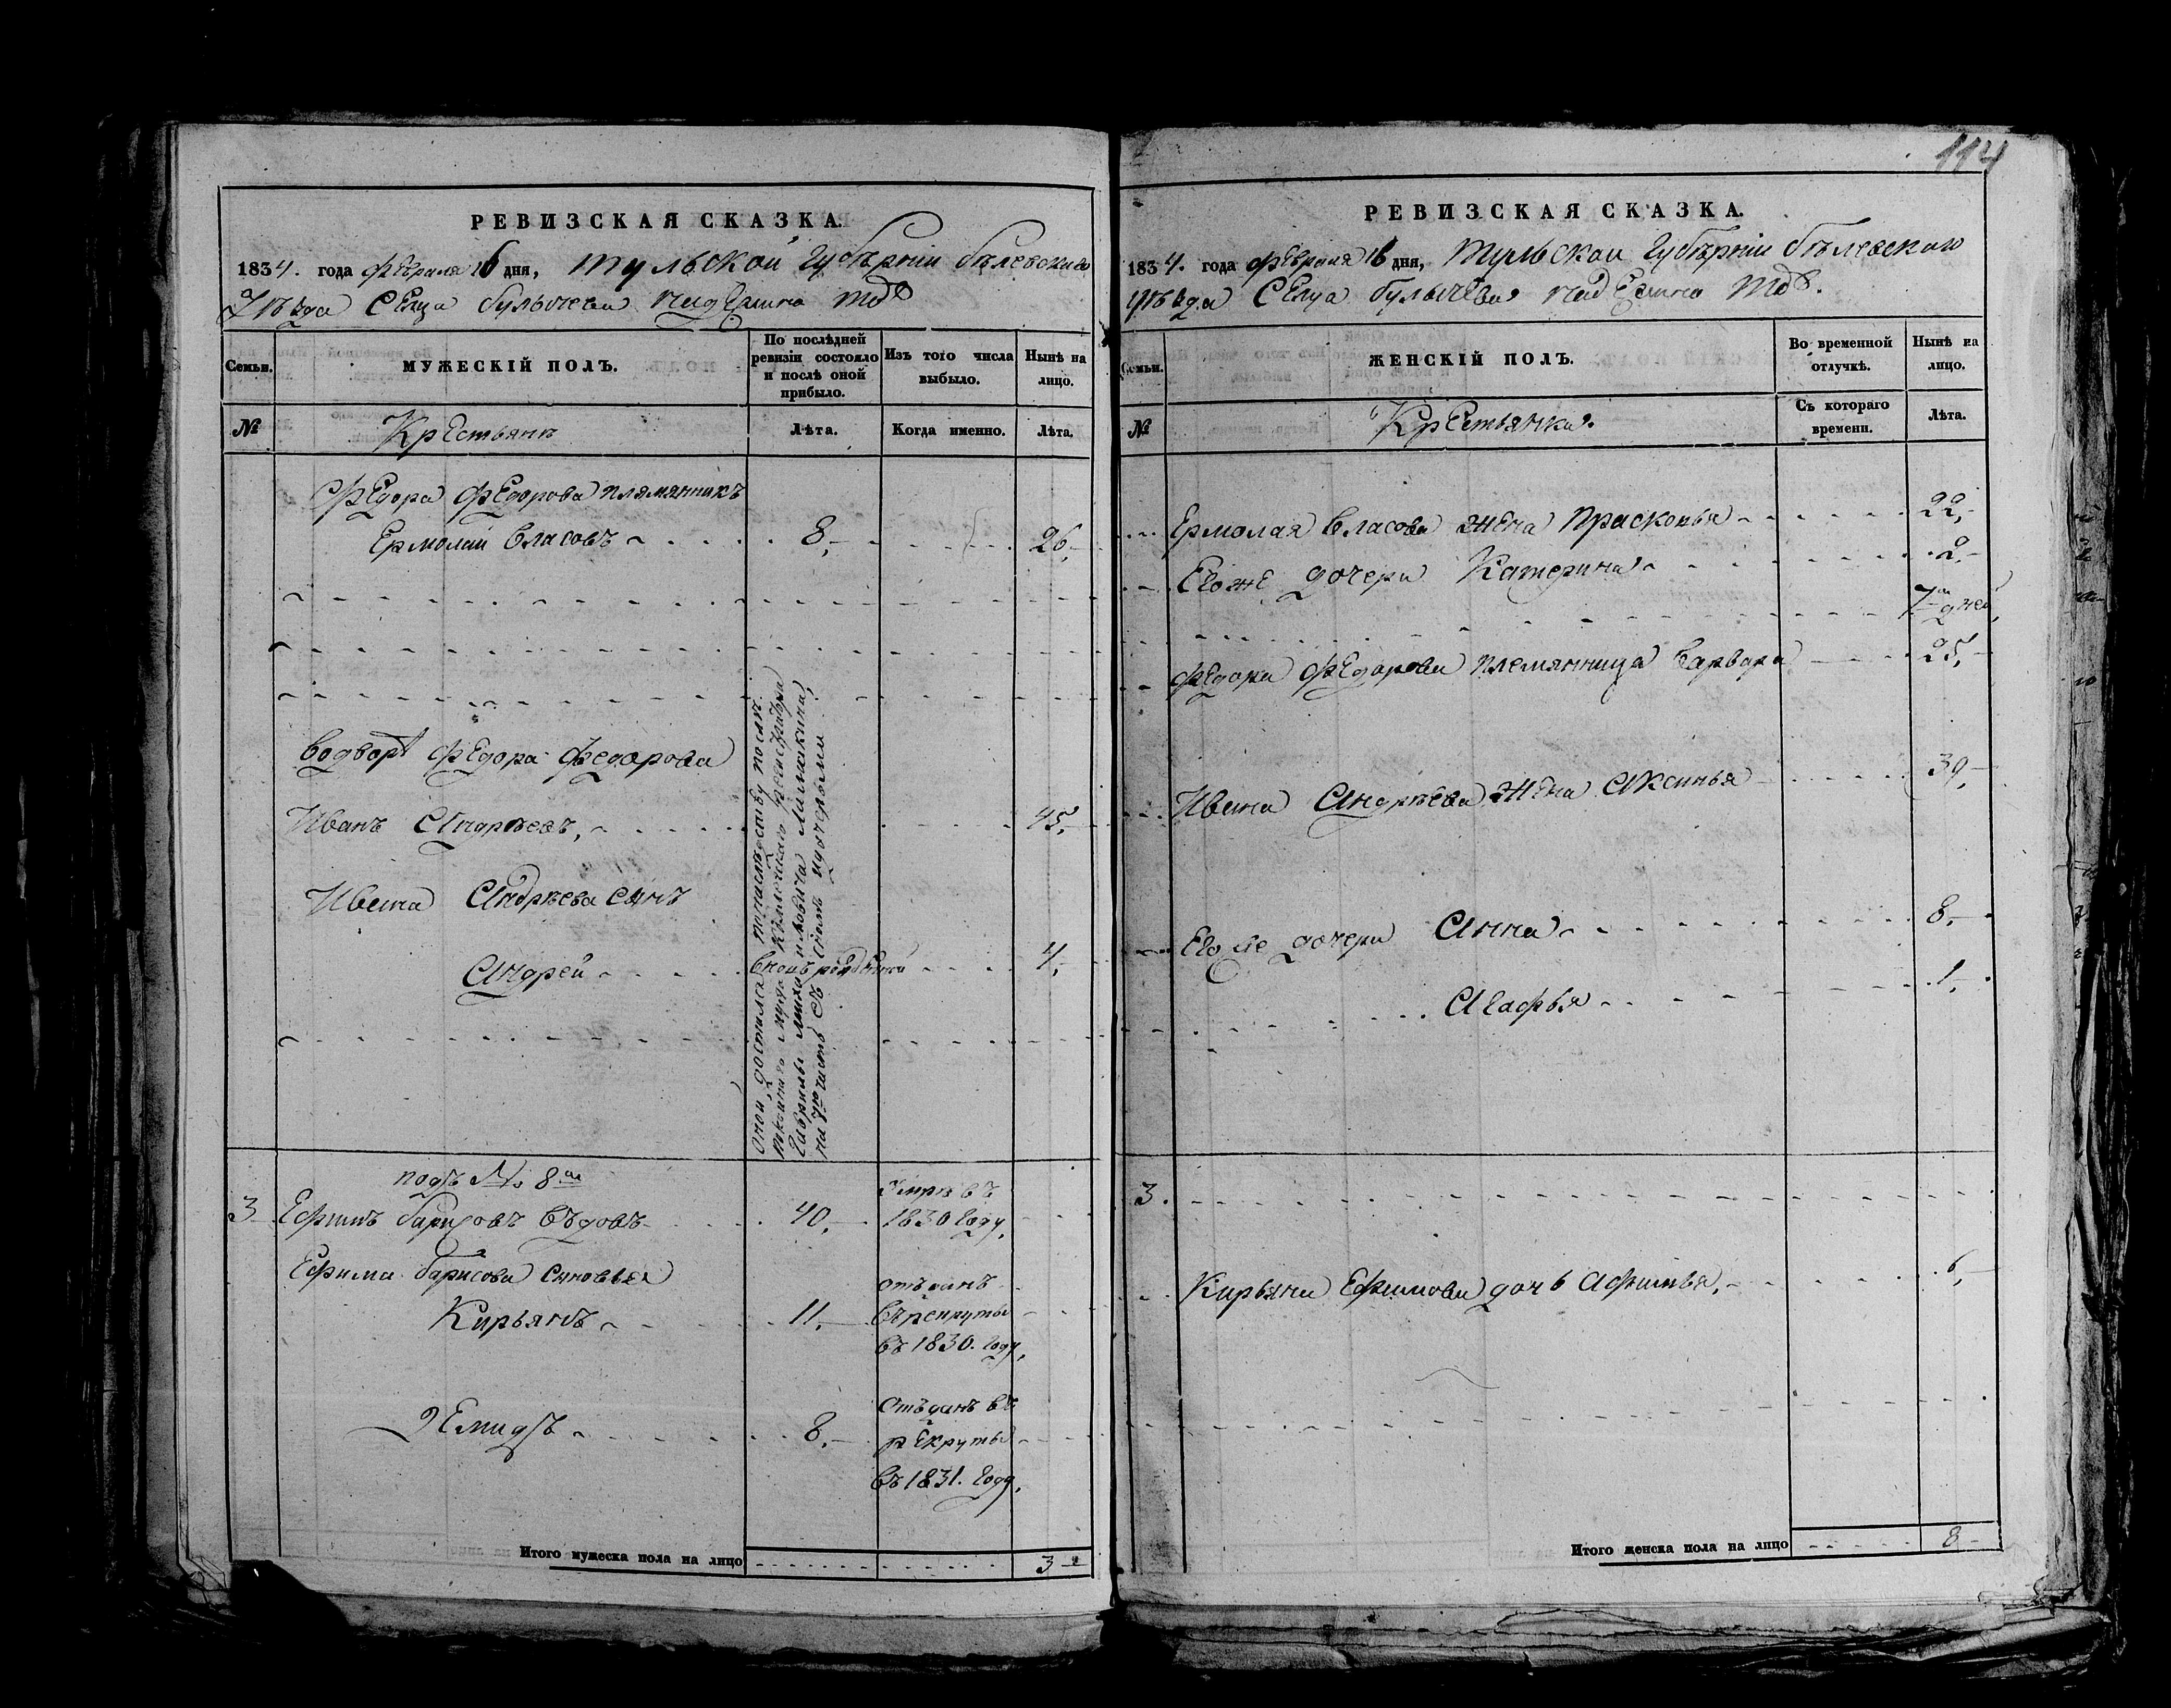 РЕВИЗСКАЯ СКАЗКА.
1834. года февраля 16 дня, тульской губернiи белевскаго
Уезда Сельца булычева
МУЖЕСКIЙ ПОЛЪ.
Семьи.
По послѣдней ревизiи состояло и послѣ оной прибыло.
Изъ того числа выбыло.
Нынѣ на лицо.
№
Крестьянъ
Лѣта.
Когда именно.
Лѣта.
Федора Федорова плямянникъ
Ермолай Власовъ 8, 26,
Водворе Федора Федорова
Иванъ Андреевъ, 45,
Ивана Андреева сынъ
Андрей вновь рожденной 4,
Оной достился понаследству после
покойнаго мужа
Гаврилы Михайловича
начасть съ дочерьми
подъ № 8м
3 Ефимъ Барисовъ Вдовъ 40, умре въ
1830 году,
Ефима Барисова сыновья
Кирьянъ 11, отданъ
въ рекруты
въ 1830. году,
Демидъ 8, отъданъ въ
рекруты
въ 1831. году,
Итого мужеска пола на лицо 3
114
РЕВИЗСКАЯ СКАЗКА.
1834. года февраля 16 дня, Тульскои губернiи белевскаго
уезда Сельца булычева
Семьи.
ЖЕНСКIЙ ПОЛЪ.
Во временной отлучкѣ.
Нынѣ на лицо.
№
Крестьянки.
Съ котораго времени.
Лѣта.
Ермолая Власова жена Прасковья 22,
Егоже дочери Катерина 2,
7 дней
Федора Федорова племянница Варвара 25,
Ивана Андреева жена Аксинья 39,
Его же дочери Анна 8,
Агафья 1,
3.
Кирьяна Ефимова дочь Афимья, 6,
Итого женска пола на лицо 8